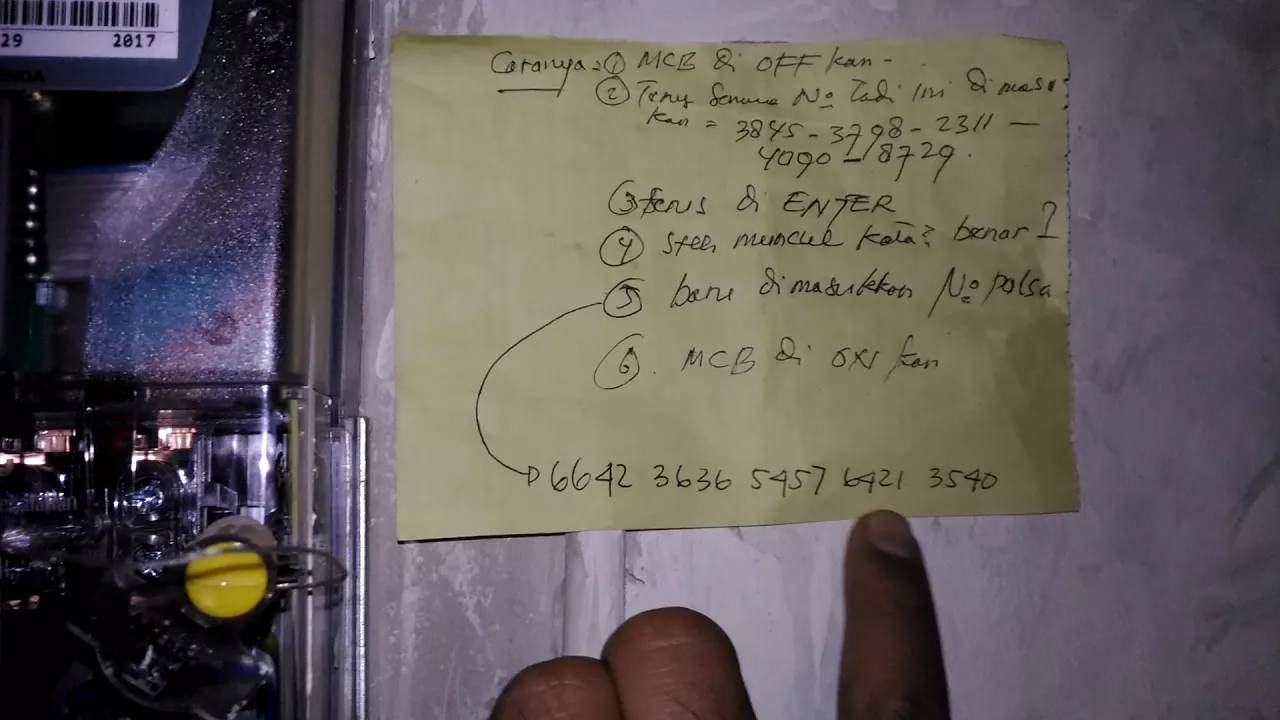 29 2017
Caranya: ① MCB di OFF kan -
② Terus semua No tadi ini di masu
kan = 3845 - 3798 - 2311 —
4090 - 8729.
③ terus di ENTER
④ stelh muncul kata² benar
⑤ baru dimasukkan No pulsa
⑥. MCB di ON kan
6642 3636 5457 6421 3540